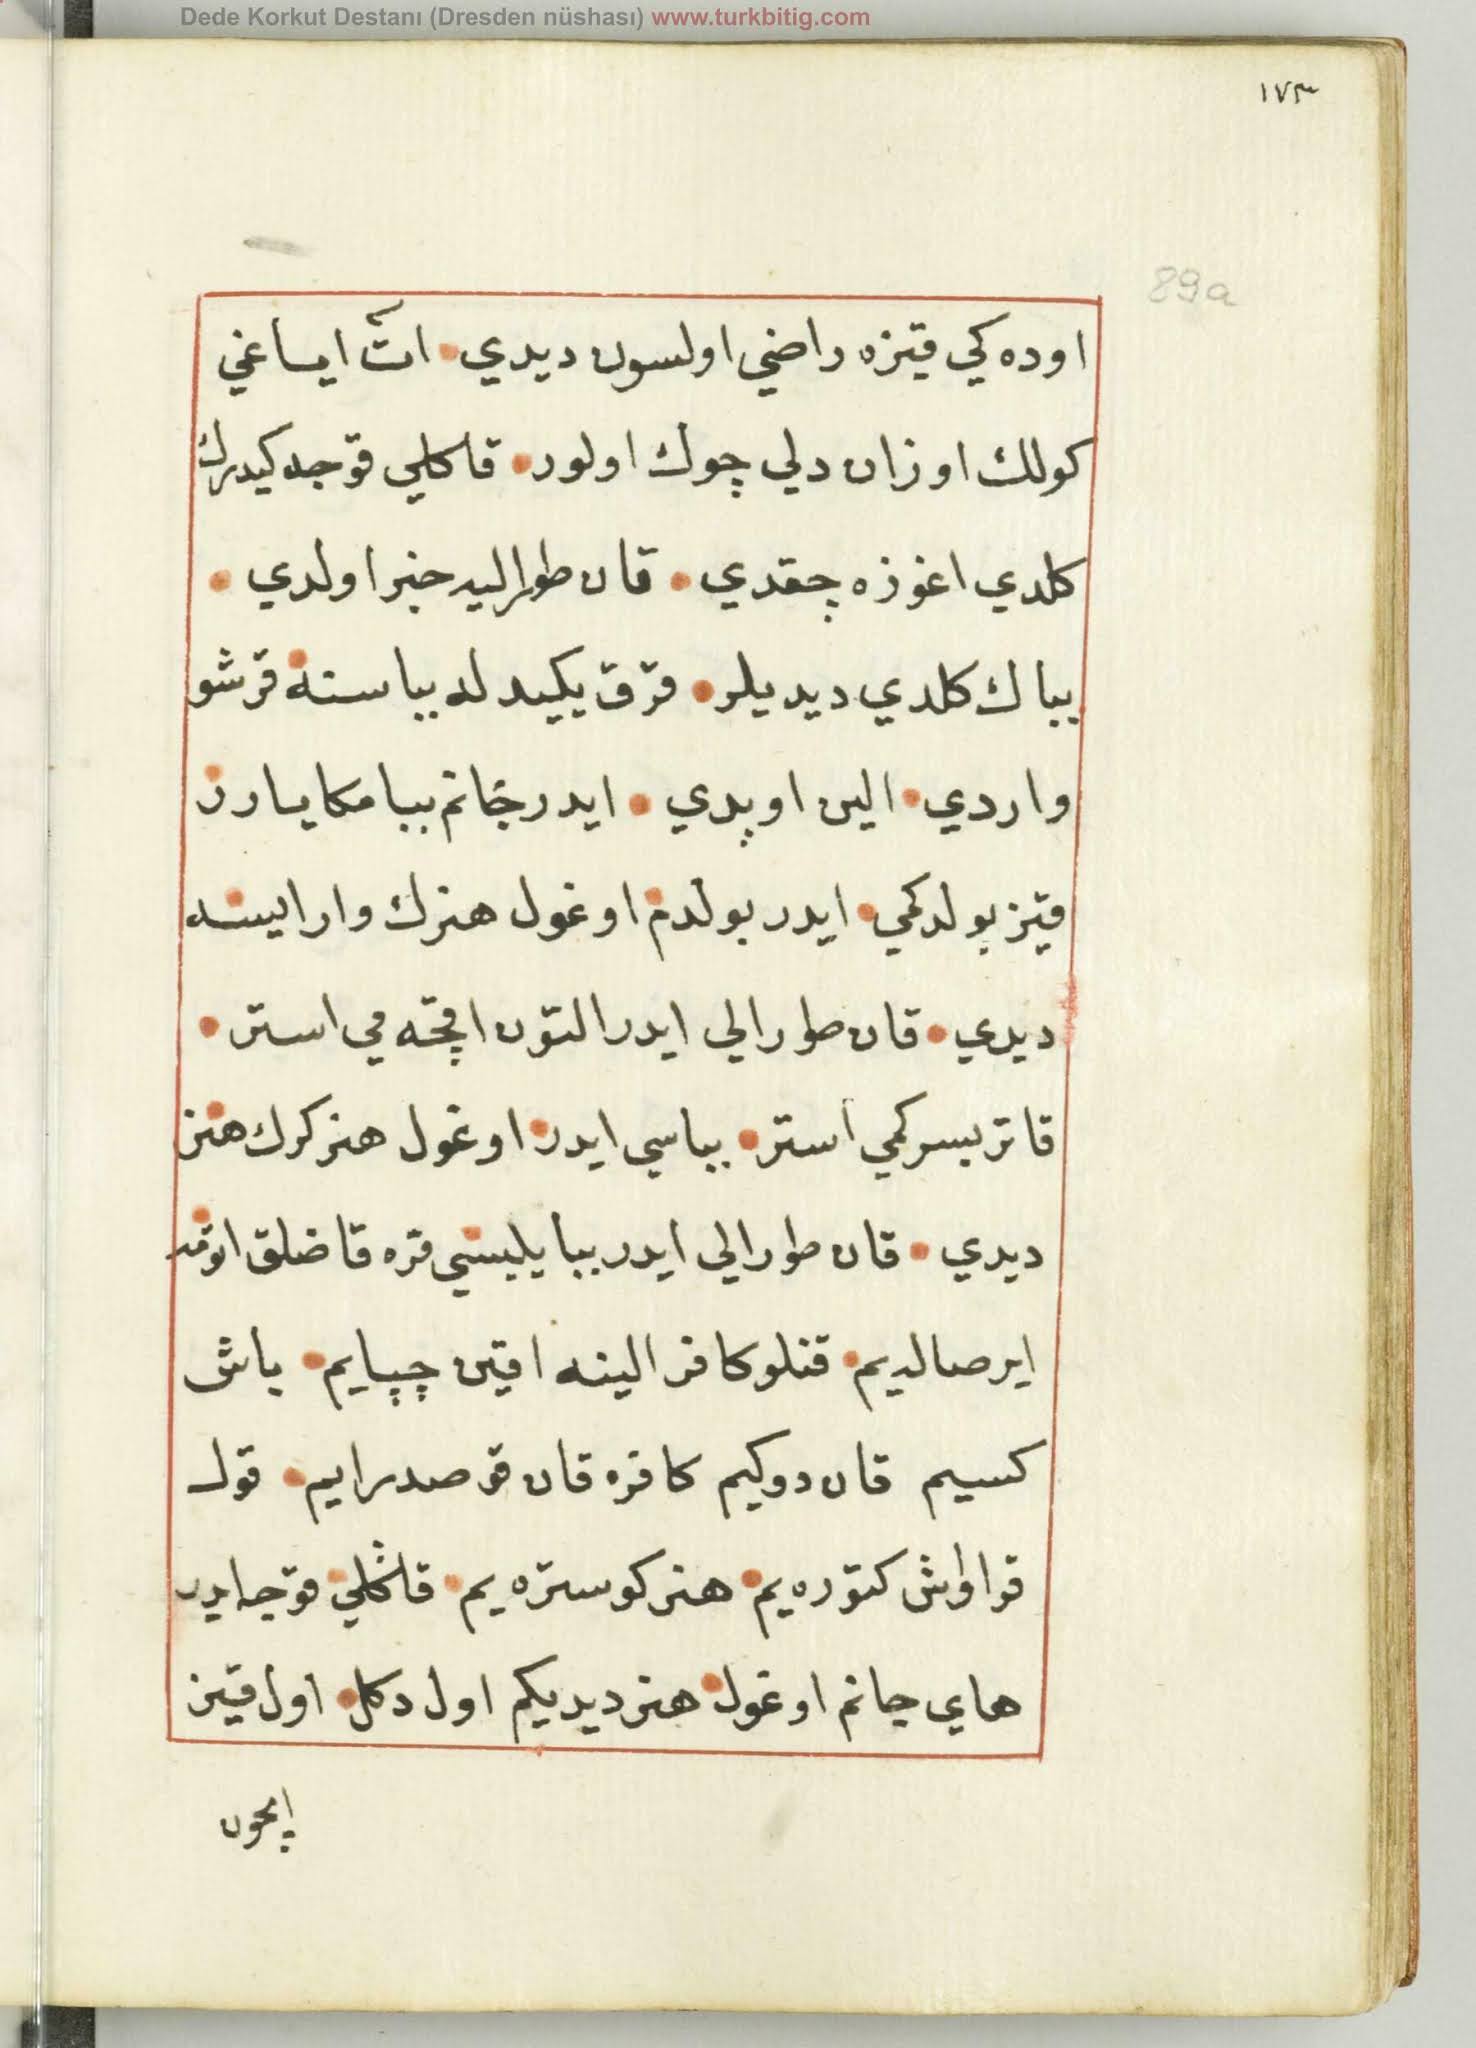 Dede Korkut Destanı (Dresden nüshası) www.turkbitig.com
١٧٣
89a
اوده كي قیزه راضي اولسون دیدي • ات ایاغي
كولك اوزان دلي چوك اولور • قاكلي قوجه كیدرك
كلدي اغوزه چقدي • قان طورالیه خبر اولدي •
بباك كلدي دیدیلر • قرق یكیدله بباسنه قرشو
واردي • الین اوپدي • ایدر جانم ببا مكا یارر
قیز بولدكمي • ایدر بولدم اوغول هنرك وار ایسه
دیدي • قان طورالي ایدر التون اقچه مي استر •
قاتر بسركمي استر • بباسي ایدر اوغول هنر كرك هنر
دیدي • قان طورالي ایدر ببا یلیسي قره قاضلق اتومه
ایر صالدیم • قنلو كافر الینه اقین چپایم • باش
كسیم قان دوكیم كافره قان قوصدرایم • قول
قراواش كتوره یم • هنر كوستره یم • قاكلي قوجه ایدر
هاي جانم اوغول هنر دیدیكم اول دكل • اول قیز
ایچون